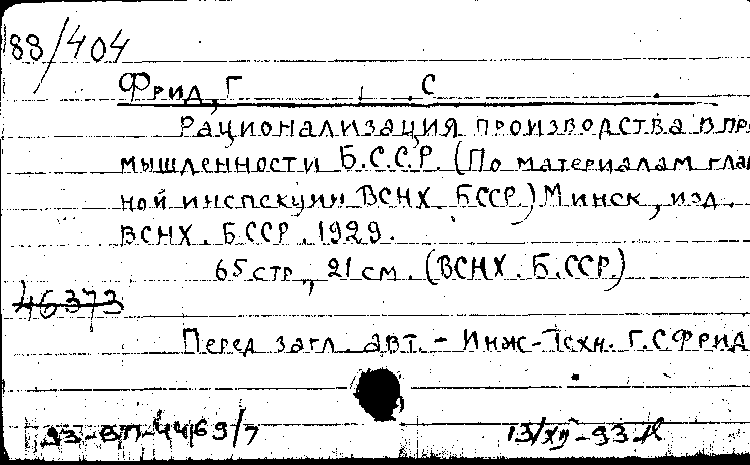 88/404
Фрид, Г. С
Рационализация производства в про
мышленности Б.С.С.Р. (По материалам глав
ной инспекции ВСНХ БССР.) Минск, изд.
ВСНХ. БССР. 1929.
65 стр., 21 см. (ВСНХ. Б.ССР.)
46373
Перед загл. авт. - Инж-Техн. Г.С Фрид
93-ВП-44169/7 13/XII-93